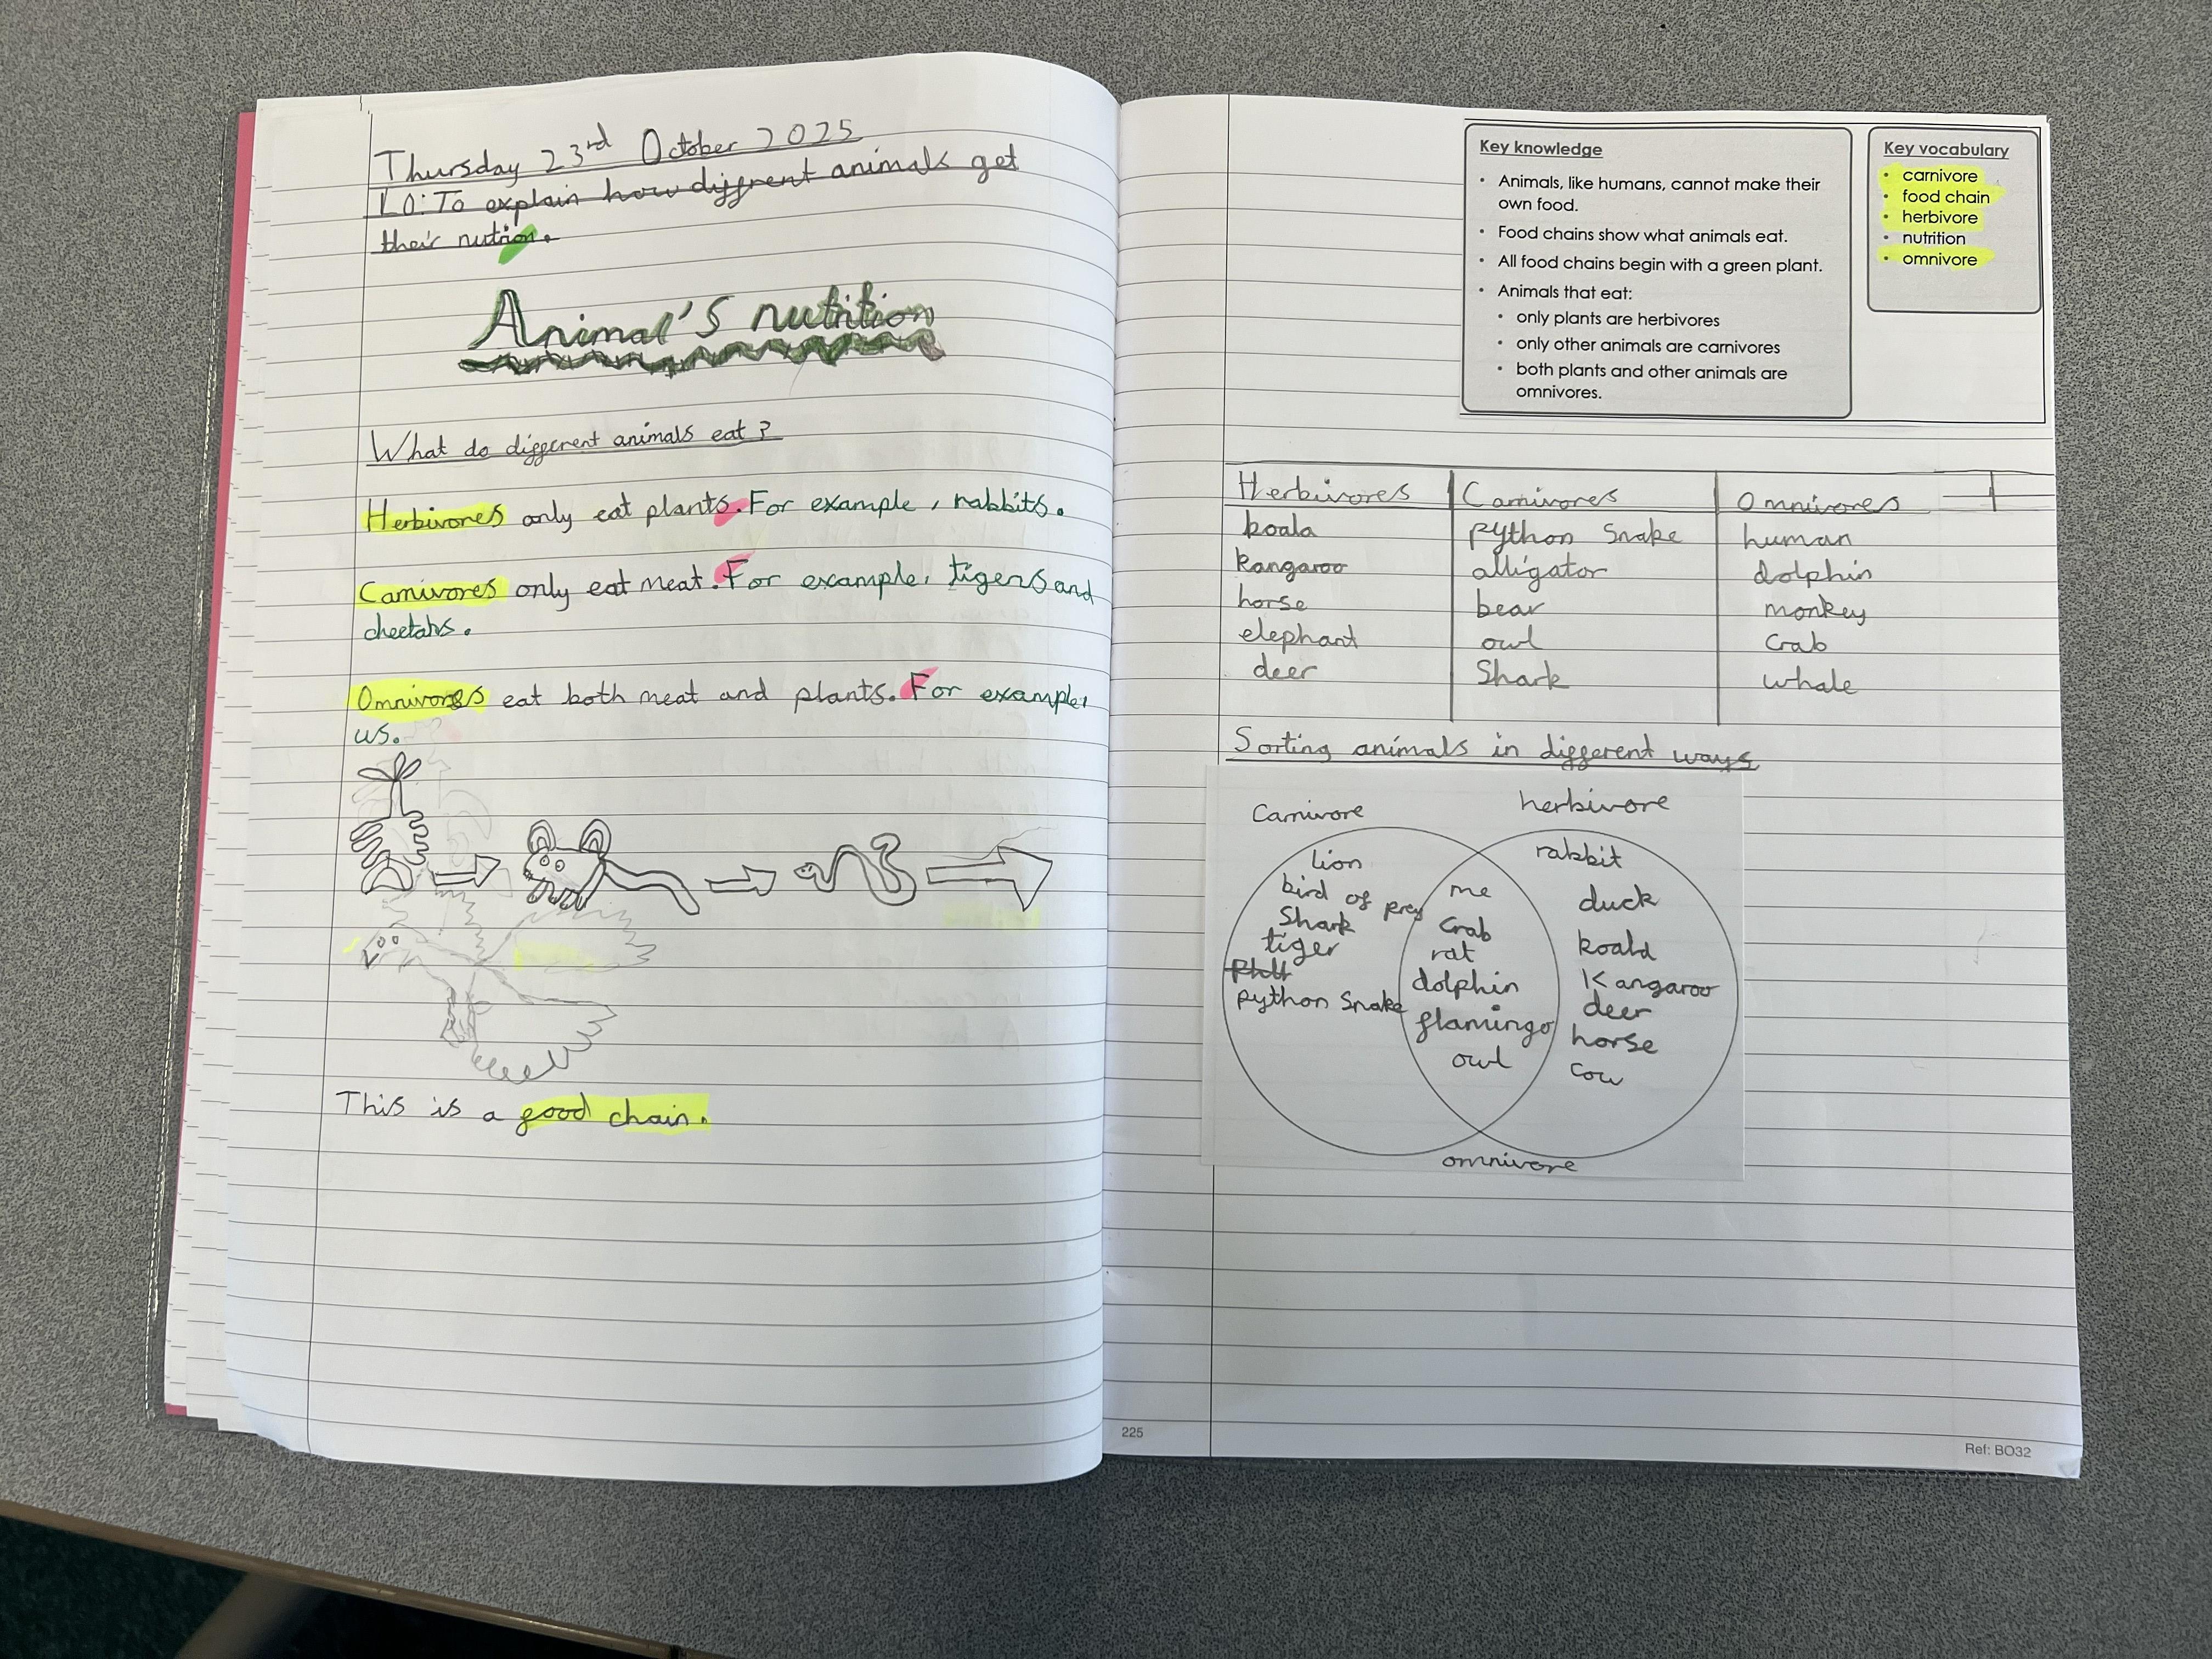 Thursday 23rd October 2025
LO: To explain how diffrent animals get
their nution.
Animal's nutrition
What do different animals eat?
Herbivores only eat plants. For example, rabbits.
Carnivores only eat meat. For example, tigers and
cheetahs.
Omnivores eat both meat and plants. For example,
us.
This is a food chain.
Key knowledge
• Animals, like humans, cannot make their
own food.
• Food chains show what animals eat.
• All food chains begin with a green plant.
• Animals that eat:
• only plants are herbivores
• only other animals are carnivores
• both plants and other animals are
omnivores.
Key vocabulary
• carnivore
• food chain
• herbivore
• nutrition
• omnivore
Herbivores Carnivores Omnivores
koala python Snake human
kangaroo alligator dolphin
horse bear monkey
elephant owl crab
deer Shark whale
Sorting animals in different ways
Carnivore
herbivore
lion
bird of prey
Shark
tiger
python Snake
me
crab
rat
dolphin
flamingo
owl
rabbit
duck
koala
Kangaroo
deer
horse
cow
omnivore
225
Ref: BO32